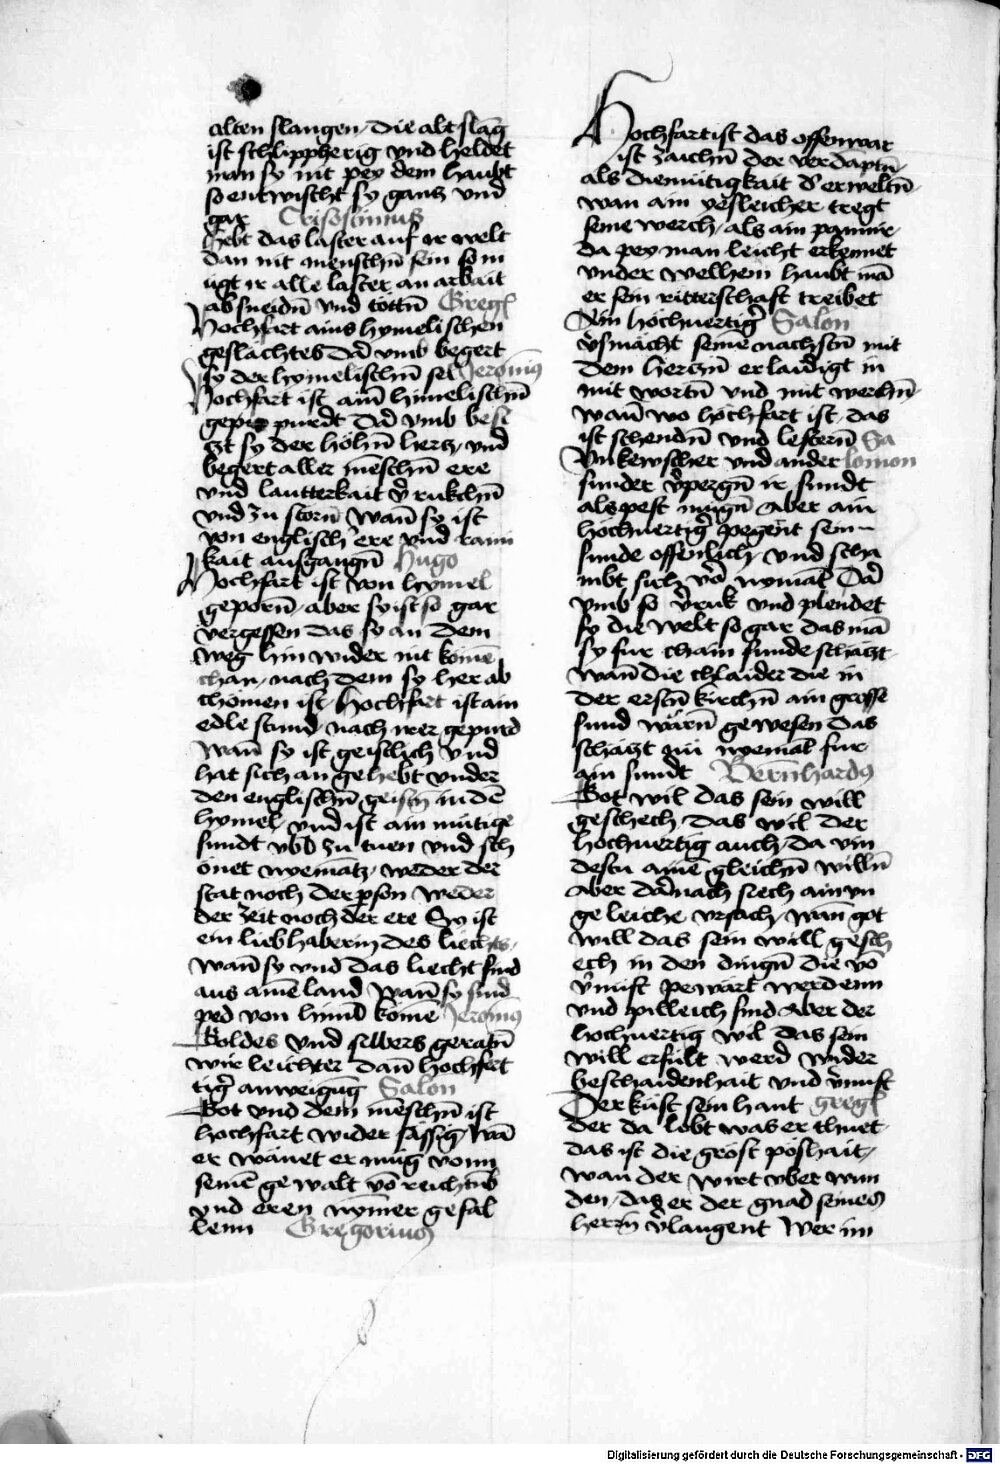 alten slangen / Die alt slāg
ist schlippherig vnd heldet
man sy nit pey dem haubt
so entwischt sy ganz vnd
gar Crisostimus
Hebt das laster auf er welt
dan nit menschn̄ sein so m
ügt ir alle laster an arbait
ab sneidn̄ vnd tottn̄ Greg
Hochfart ains hymelischen
geslächtes Dar̄ vmb begert
sy der hymelischn̄ sel Jeronim9
Hochfart ist ain̄ himelischn̄
gepurdt Dar̄ vmb besi
tzt sy der höhn̄ hertz / vnd
begert aller mēschn̄ ere
vnd lautterkait v̄ rukchn̄
vnd zu storn̄ wan̄ sy ist
von englisch ere vnd raini
kait ausgangn̄ Hugo
Hochfart ist von hymel
geporn̄ / aber sy ist so gar
vergessen das sy an dem
weg hin wider nit komē
chan / nach dem sy her ab
chömen ist / Hochfart ist ain
edle stund / nach irer gepurd
wan̄ sy ist geistlich vnd
hat sich an gehebt vnder
den englischn̄ geistn̄ in dē
hymel / vnd ist ain mütige
sundt vbl zu tuen vnd sch
önet nyemātz / weder der
stat noch der pson weder
der zeit noch der ere Sy ist
ein liebhaberin des liechts /
wan̄ sy vnd das liecht sind
aus ainē land wan̄ sy sind
ped von himl komē Jeronim9
Goldes vnd silbers geratn̄
wir leichter dan̄ hochfart
tiḡ anweigūg Salon
Got vnd dem mēschn̄ ist
hochfart wider sässig wā
er wänet er müg vonn
seinē gewalt vō reichtūb
vnd eren nymer gefal
lenn Gregorius
Hochfart ist das offenwar
ist zaichn̄ der verdāptn̄
als diemütigkait d' erweltn̄
wan ain yesleicher tregt
seine werch / als ain pannir /
da pey man leicht erkennet
vnder welhem haubt mā
er sein ritterschaft treibet
Ain hochuertiḡ Salon
v̄smächt seinē nachstn̄ mit
dem hertzn̄ er laidigt in
mit wortn̄ vnd mit werchn̄
wan̄ wo hochfart ist / das
ist schendn̄ vnd lestern̄ Sa
Vnkewscher vnd ander lomon
sunder v̄pergn̄ ir sundt
als pest mugn̄ Aber ain
hochuertiḡ pegent sein
sunde offenlich / vnd scha
mbt sich vō nymāt Dar̄
vmb so v̄ruk vnd plendet
sy die welt so gar das mā
sy fur chain sunde schätzt
wan̄ die chlaider die in
der erstn̄ kirchn̄ ain grosse
sund wärn̄ gewesen das
schätzt nū nyemāt fur
ain sundt Bernhardus
Got wil das sein will
geschech / das wil der
hochuertig auch / da vin
destu ainē gleichn̄ willn̄
Aber dar̄nach siech ain vn
geleiche vrsach / wan̄ got
will das sein will gesch
ech in den dingn̄ die vō
v̄nuft pewart werdenn
vnd pilleich sind Aber der
hochuertig wil das sein
will erfult werd wider
beschaidenhait vnd v̄nuft
Der küst sein hant greg
der da lobt was er thuet
das ist die gröst poshait /
wan der wirt vber wun
den / das er der gnad seines
herrn̄ v̄laugent Wer im
Digitalisierung gefördert durch die Deutsche Forschungsgemeinschaft - DFG